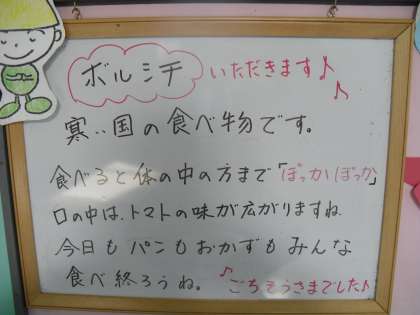 ボルシチ いただきます♪♪
寒い国の食べ物です。
食べると体の中の方まで「ぽっかぽっか」
口の中は、トマトの味が広がりますね
今日もパンもおかずもみんな
食べ終ろうね。♪ごちそうさまでした♪